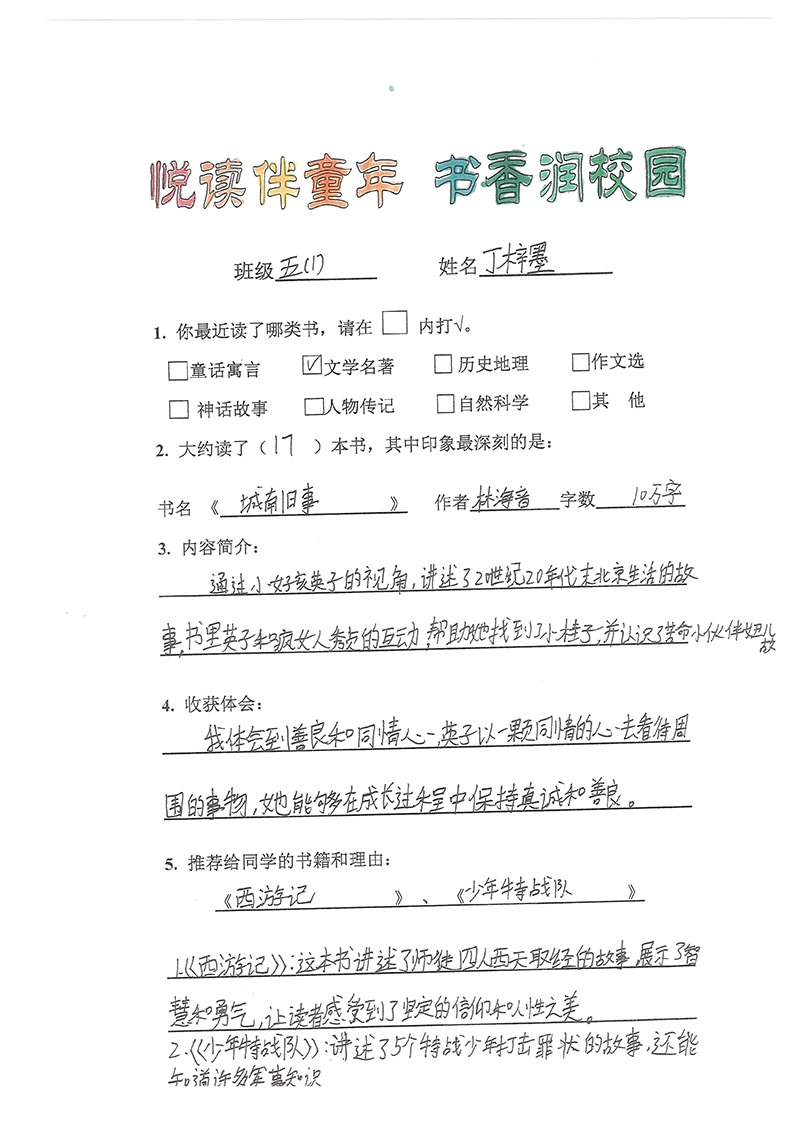 悦读伴童年 书香润校园
班级 五(1) 姓名 丁梓墨
1. 你最近读了哪类书，请在 □ 内打√。
□童话寓言 ☑文学名著 □历史地理 □作文选
□神话故事 □人物传记 □自然科学 □其 他
2. 大约读了（ 17 ）本书，其中印象最深刻的是：
书名《 城南旧事 》 作者 林海音 字数 10万字
3. 内容简介：
通过小女孩英子的视角，讲述了20世纪20年代末北京生活的故
事，书里英子和疯女人秀贞的互动，帮助她找到了小桂子，并认识了苦命小伙伴妞儿
故
4. 收获体会：
我体会到善良和同情人心，英子以一颗同情的心去看待周
围的事物，她也能够在成长过程中保持真诚和善良。
5. 推荐给同学的书籍和理由：
《西游记 》、《少年特战队 》
1.《西游记》：这本书讲述了师徒四人西天取经的故事，展示了智
慧和勇气，让读者感受到了坚定的信仰和人性之美。
2.《少年特战队》：讲述了5个特战少年打击罪状的故事，还能
知道许多军事知识